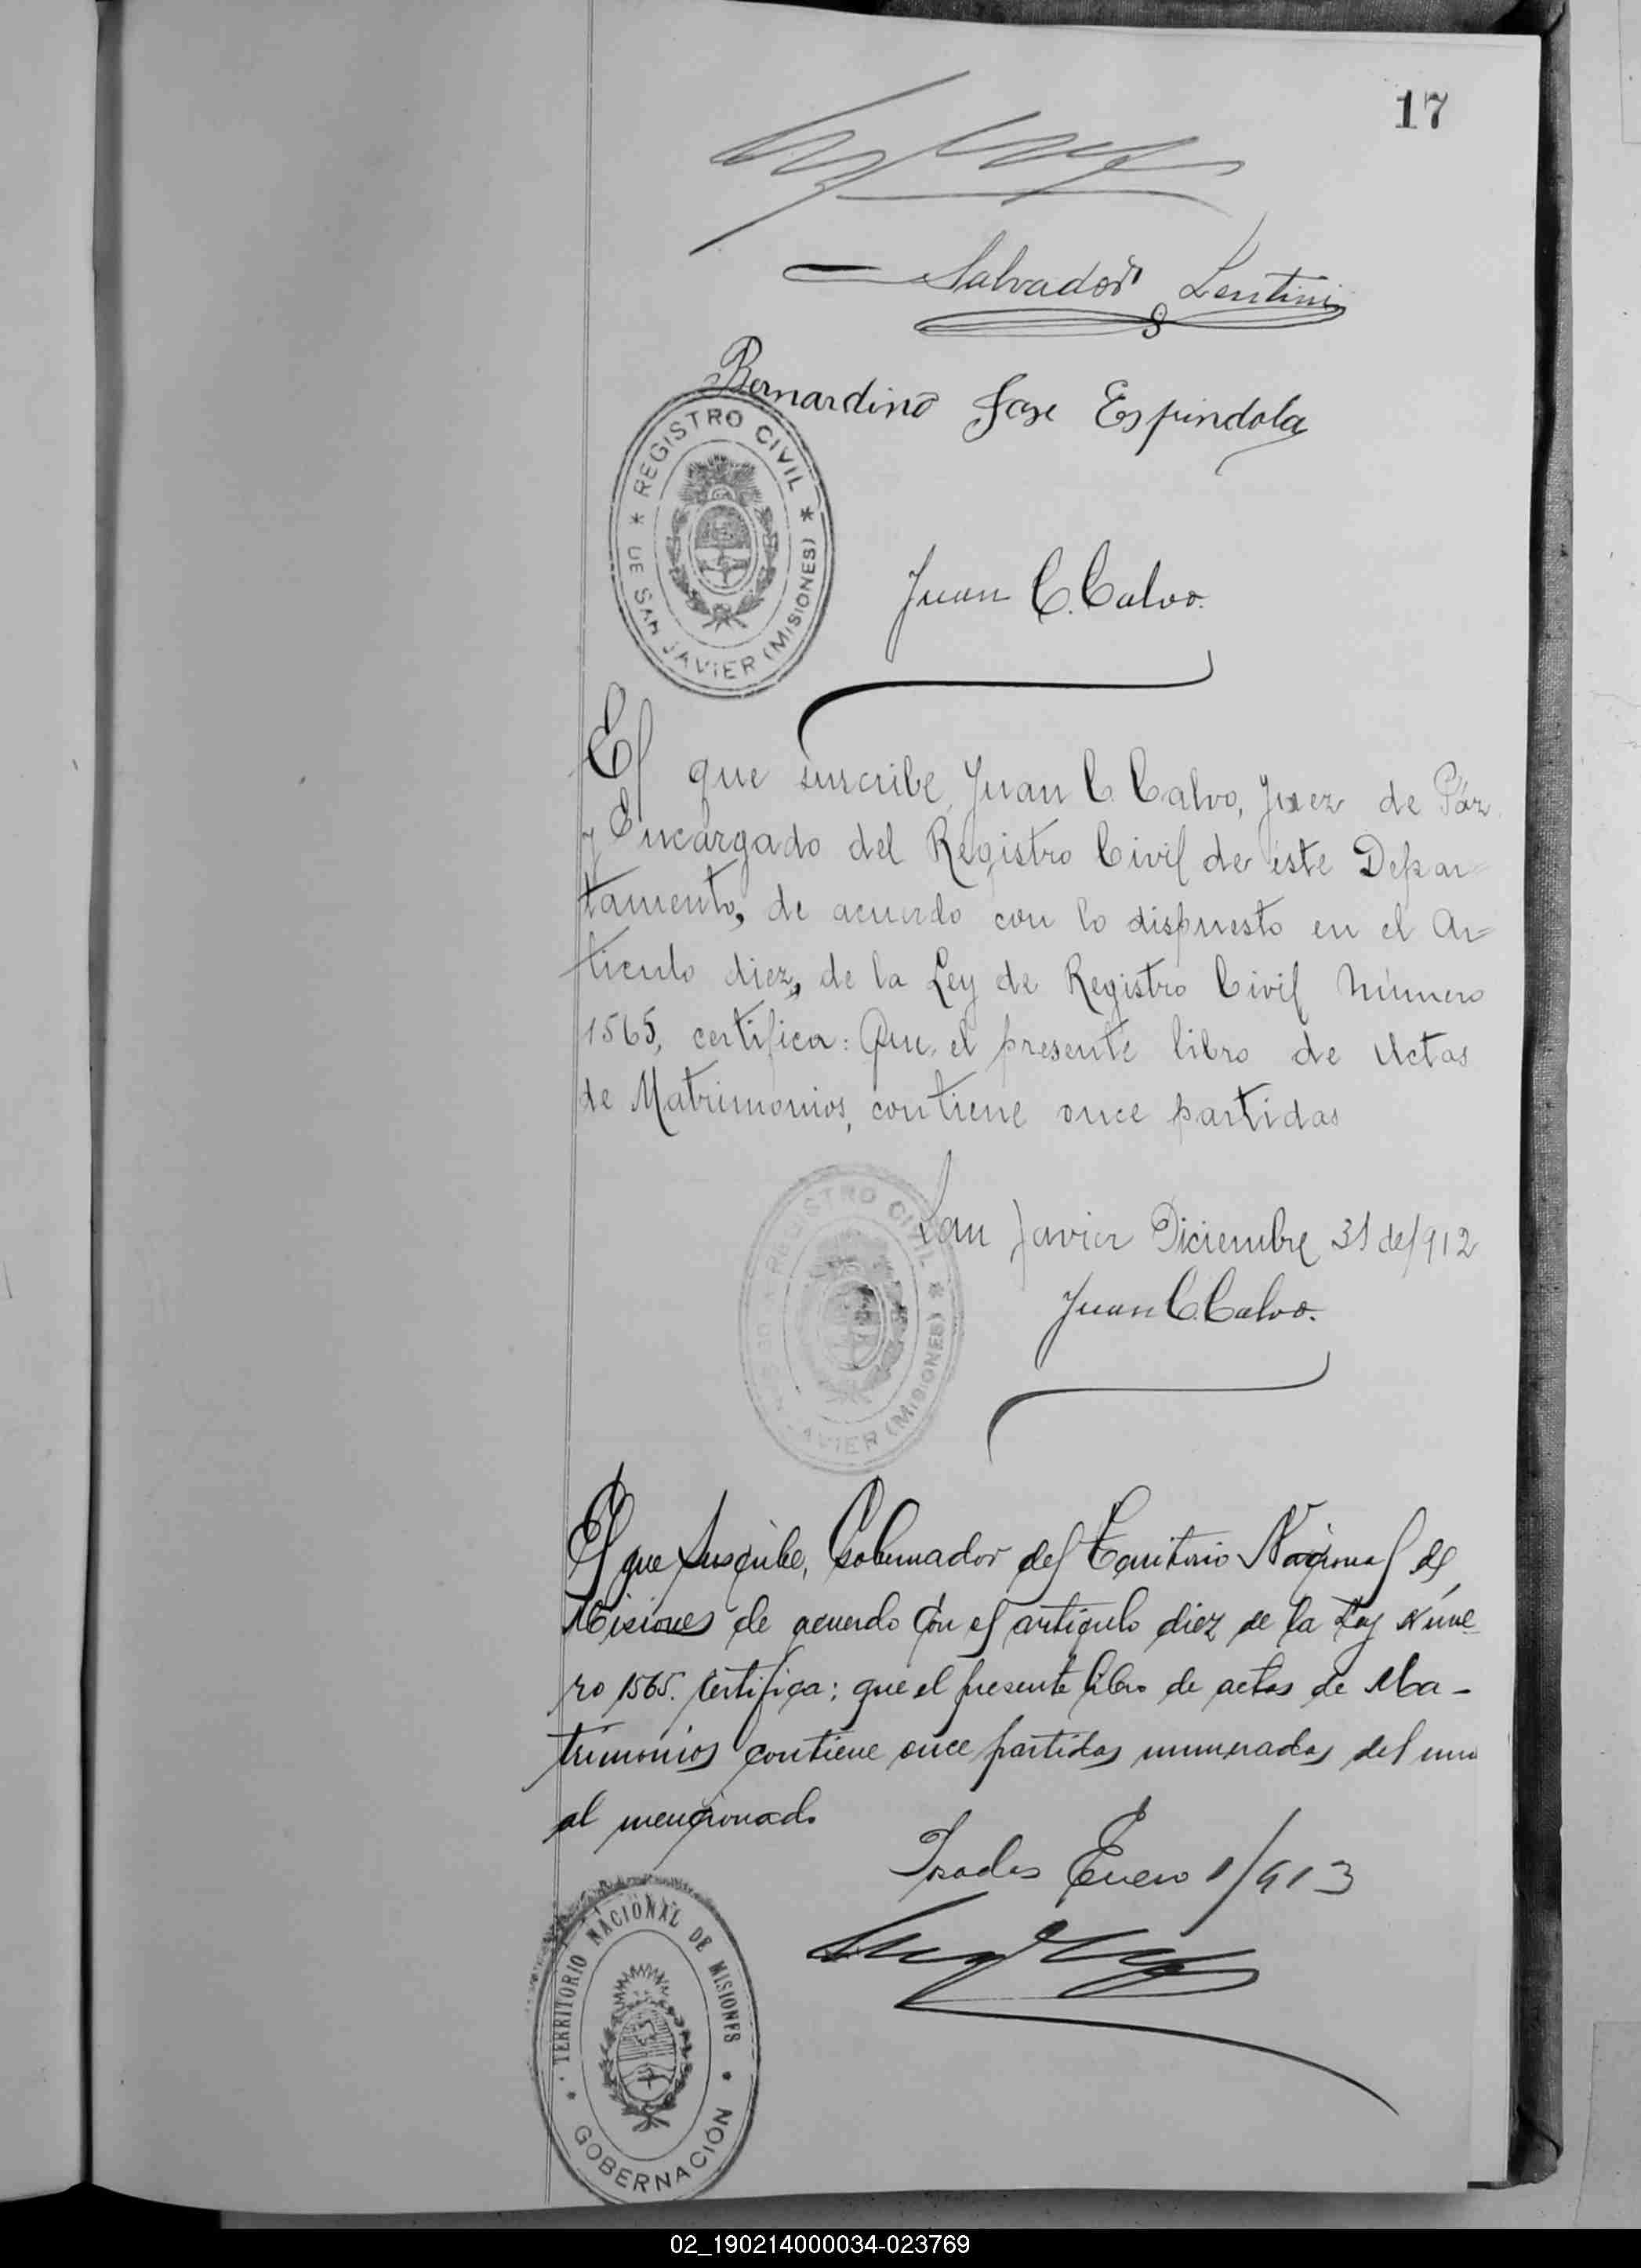 17
Salvador Lentini
Bernardino Jose Espindola
REGISTRO CIVIL
DE SAN JAVIER (MISIONES)
Juan C. Calvo.
El que suscribe, Juan C. Calvo, Juez de Páz
y Encargado del Registro Civil de éste Depar=
tamento, de acuerdo con lo dispuesto en el Ar=
ticulo diez, de la Ley de Registro Civil Número
1565, certifica: Que, el presente libro de Actas
de Matrimonios, contiene once partidas
REGISTRO CIVIL
DE SAN JAVIER (MISIONES)
San Javier Diciembre 31 de/912
Juan C. Calvo.
El que suscribe, Gobernador del Territorio Nacional de
Misiones de acuerdo con el articulo diez de la Ley Núme-
ro 1565. Certifica: que el presente libro de actas de Ma-
trimonios contiene once partidas numeradas del uno
al mencionado
Enero 1/913
TERRITORIO NACIONAL DE MISIONES
GOBERNACIÓN
02_190214000034-023769